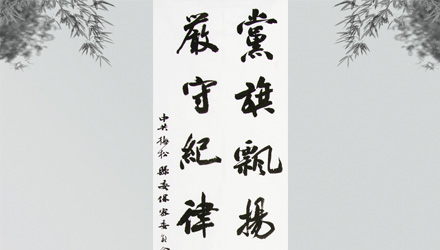 黨旗飄揚
嚴守紀律
中共楊松縣委保密委